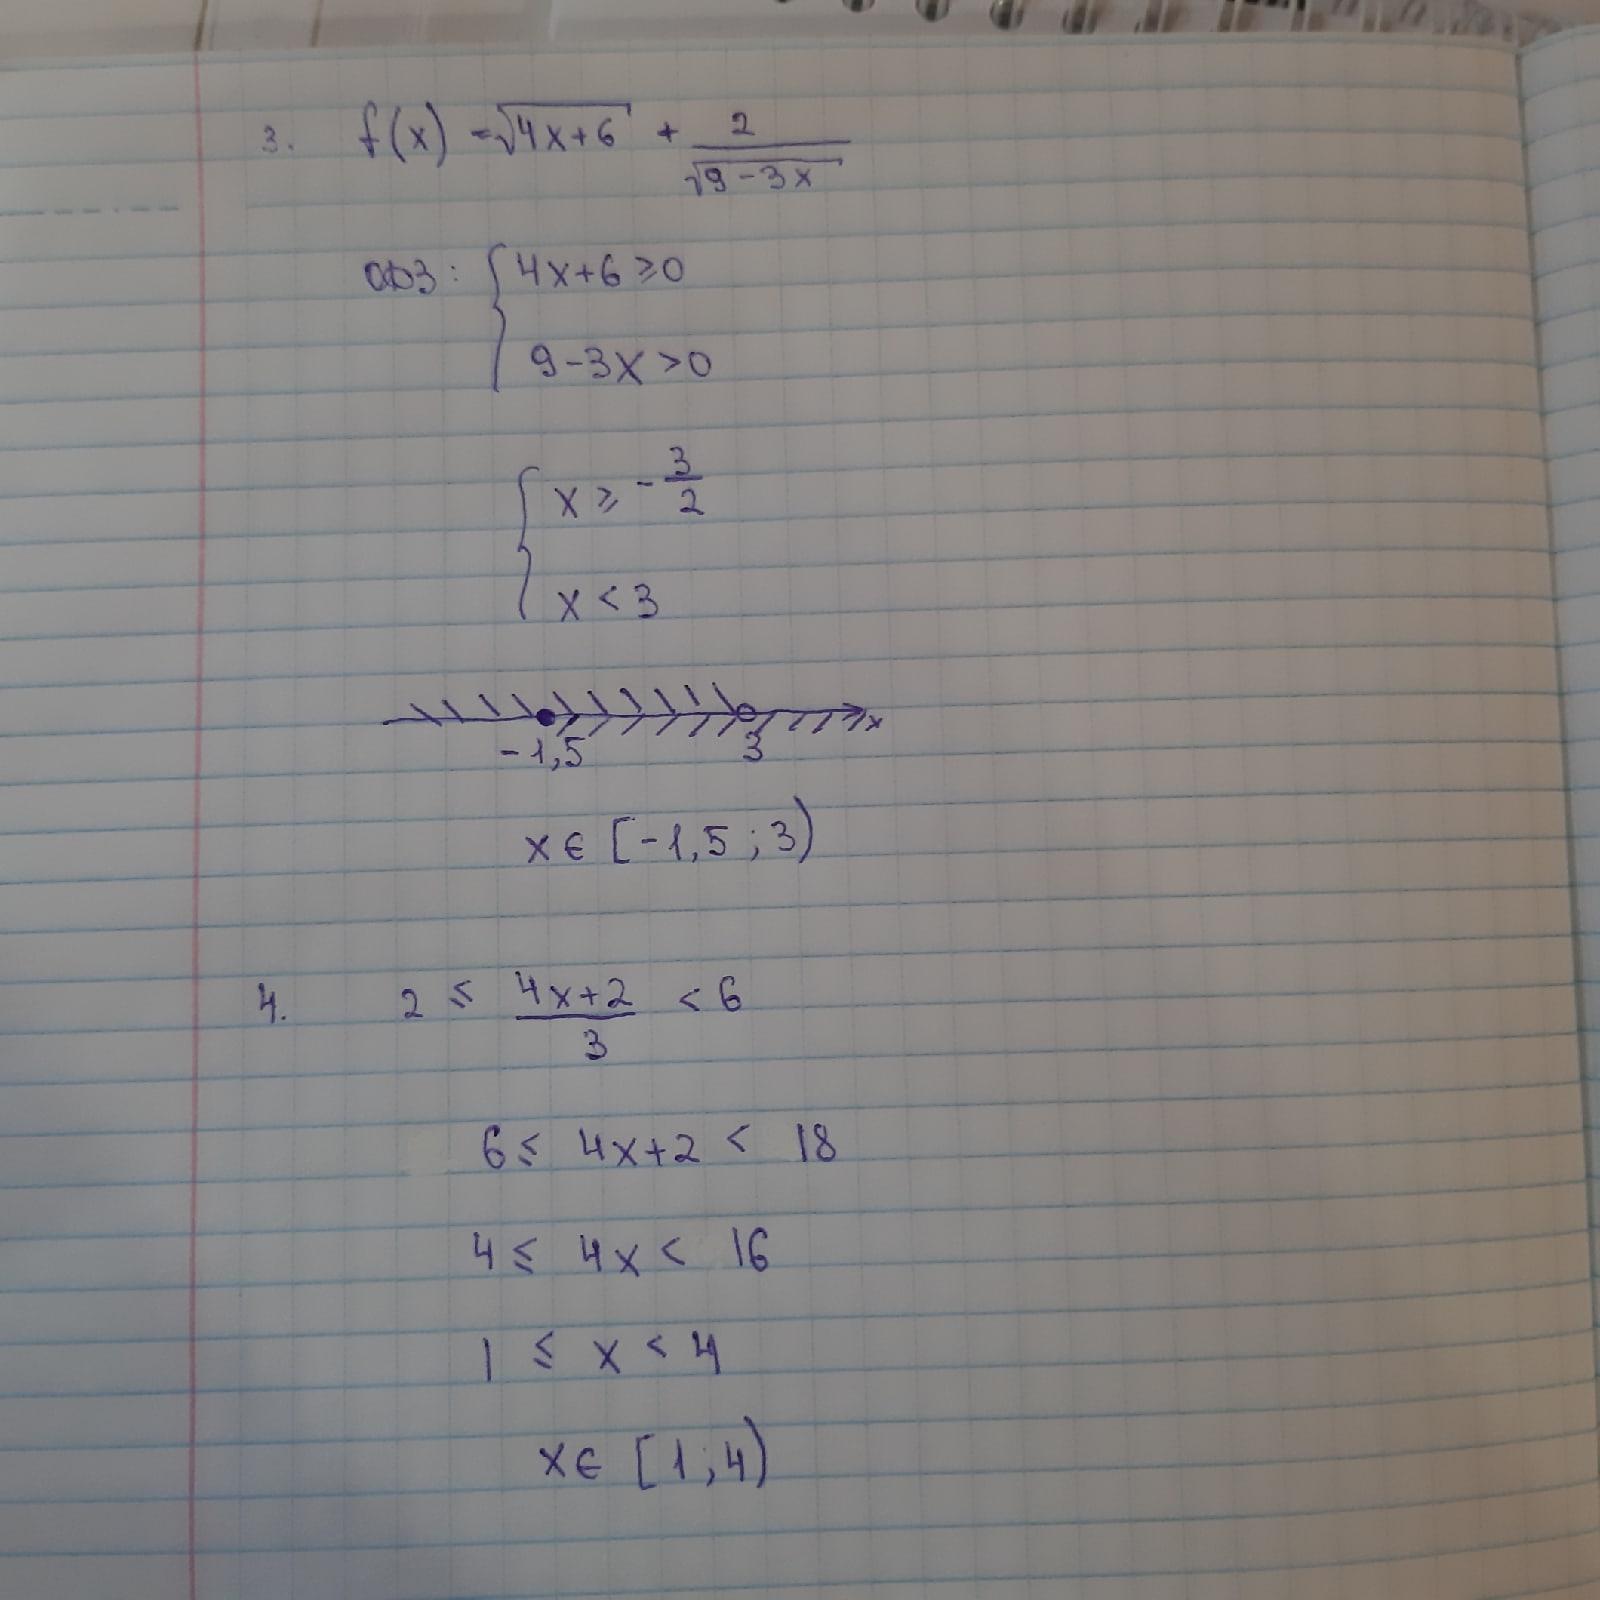 3. f(x) = √4x+6 + 2/√9-3x
ОДЗ: { 4x+6 ≥ 0
9-3x > 0
{ x ≥ -3/2
x < 3
-1,5 3 x
x ∈ [-1,5 ; 3)
4. 2 ≤ 4x+2/3 < 6
6 ≤ 4x+2 < 18
4 ≤ 4x < 16
1 ≤ x < 4
x ∈ [1 ; 4)